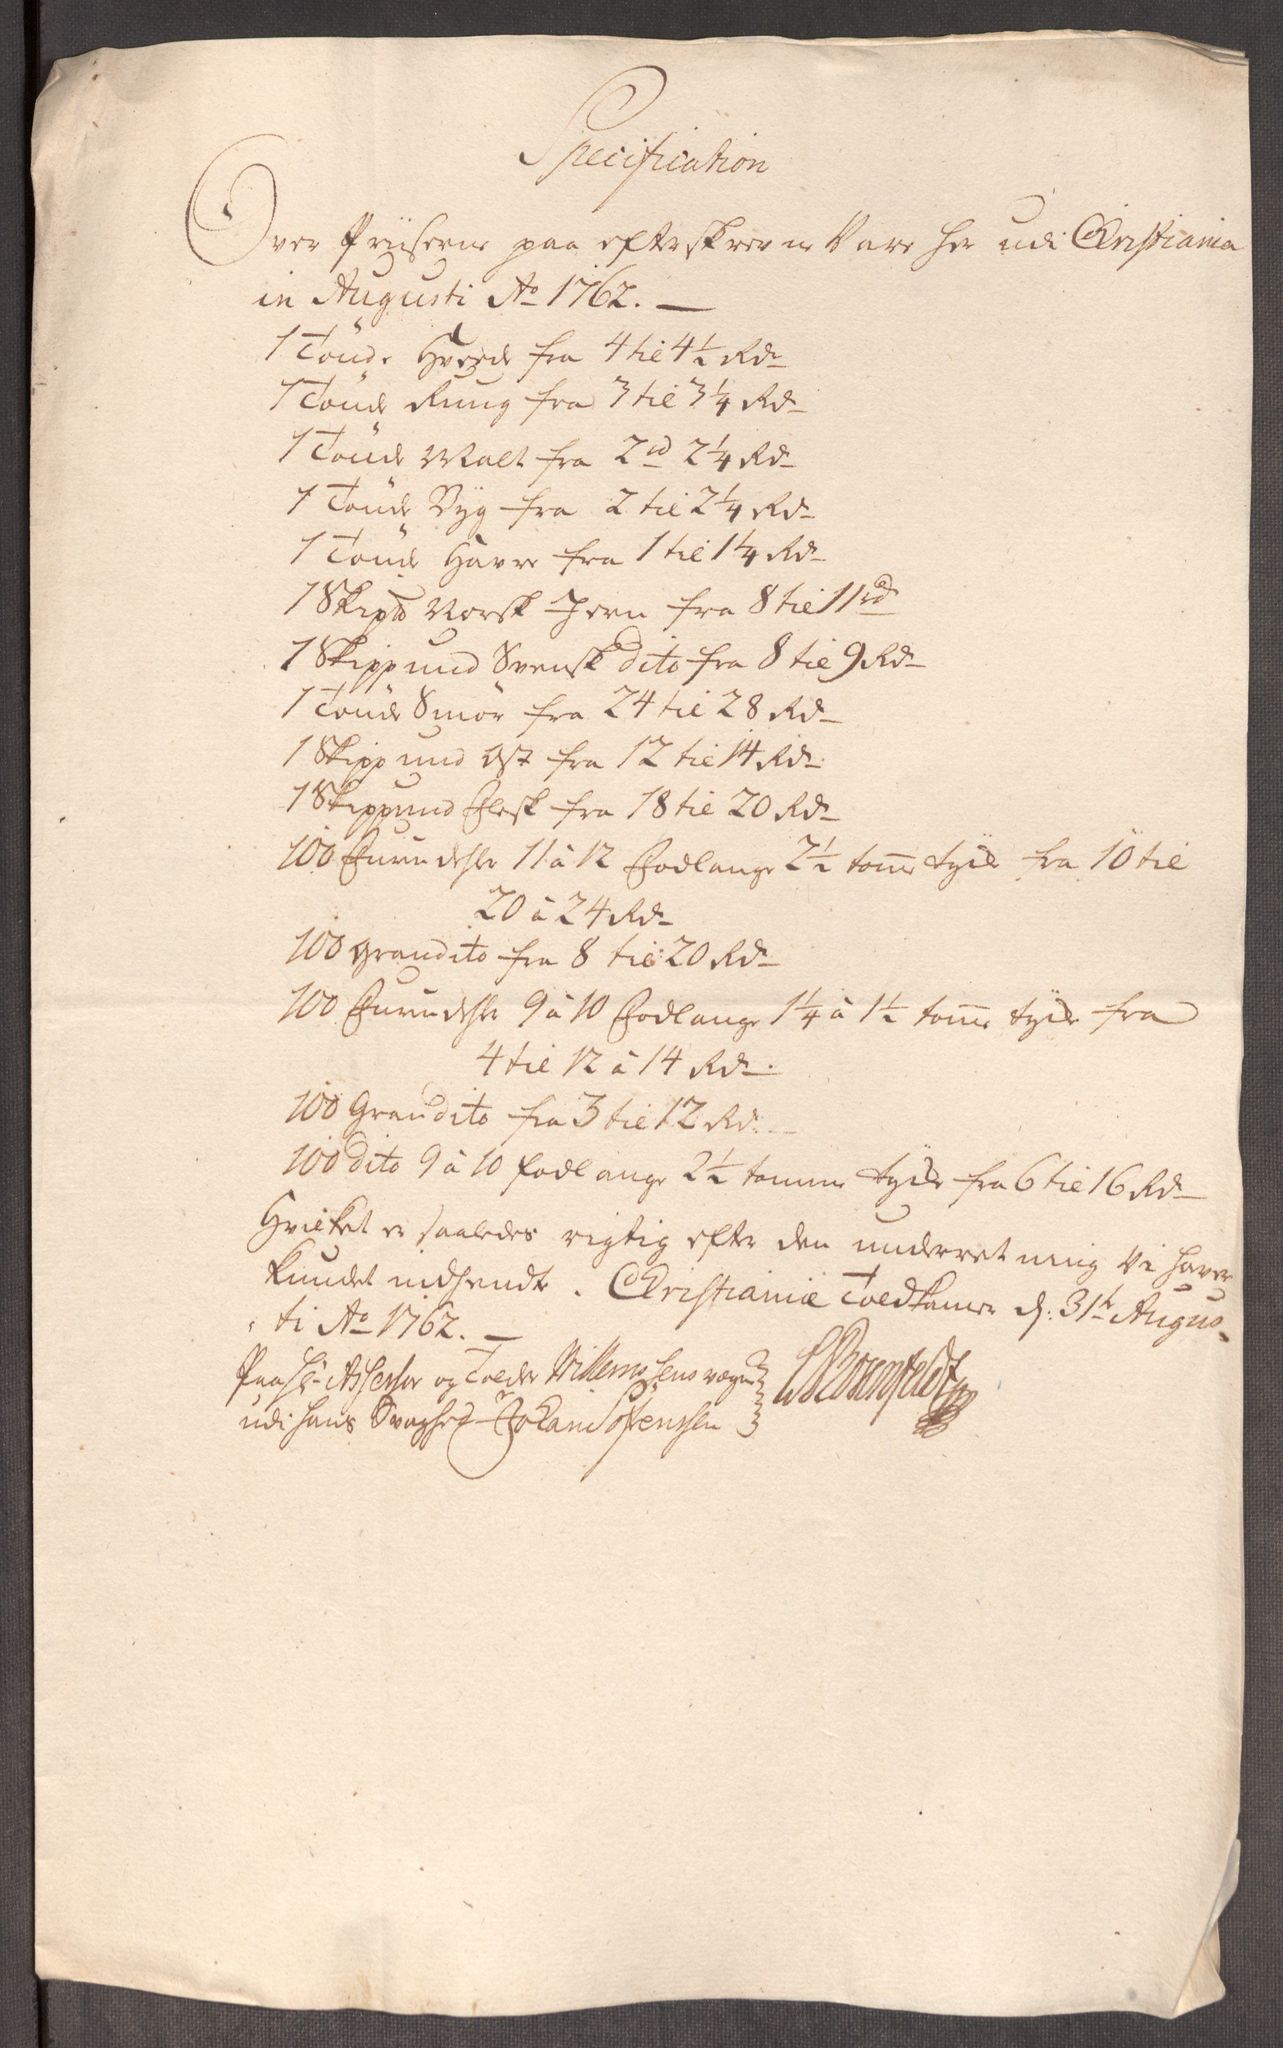 Specification
Over Priiserne paa efterskrevne Vare her udi Christiania
in Augusti Ao 1762. —
1 Tönde Hvede fra 4 til 4½ Rdr
1 Tönde Rug fra 3 til 3¼ Rdr
1 Tönde Malt fra 2 id 2¼ Rdr
1 Tönde Byg fra 2 til 2¼ Rdr
1 Tönde Havre fra 1 til 1¼ Rdr
1 Skipd Norsk Jern fra 8 til 11 rd
1 Skippund Svensk dito fra 8 til 9 Rdr
1 Tönde Smör fra 24 til 28 Rdr
1 Skippund Ost fra 12 til 14 Rdr
1 Skippund Flesk fra 18 til 20 Rdr
100 Furudehler 11 à 12 Fodlange 2½ tome tyck fra 10 til
20 à 24 Rdr
100 Grandito fra 8 til 20 Rdr
100 Furudehle 9 à 10 Fodlange 1¼ à 1½ tome tyck fra
4 til 12 à 14 Rdr
100 Grandito fra 3 til 12 Rdr
100 dito 9 à 10 fodlange 2½ tomme tyck fra 6 til 16 Rdr
Hvilket er saaledes rigtig efter den underretning Vi haver
kundet indhendte. Christianiæ Toldkamer d: 31te Augus-
ti Ao 1762. —
Paa Hr Assessor og Tolder Willemsens vegne
udi hans Svaghed Johan Sörenssen